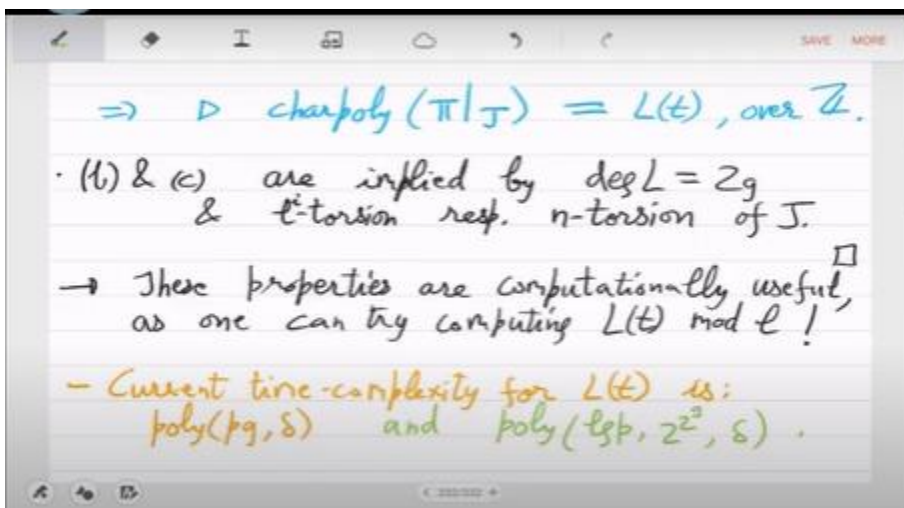 SAVE MORE
⇒ ▷ charpoly (π|J) = L(t), over ℤ.
· (b) & (c) are implied by deg L = 2g
& ℓⁱ-torsion resp. n-torsion of J. □
→ These properties are computationally useful,
as one can try computing L(t) mod ℓ !
- Current time-complexity for L(t) is:
poly(pg, δ) and poly(lgp, 2^{2^g}, δ).